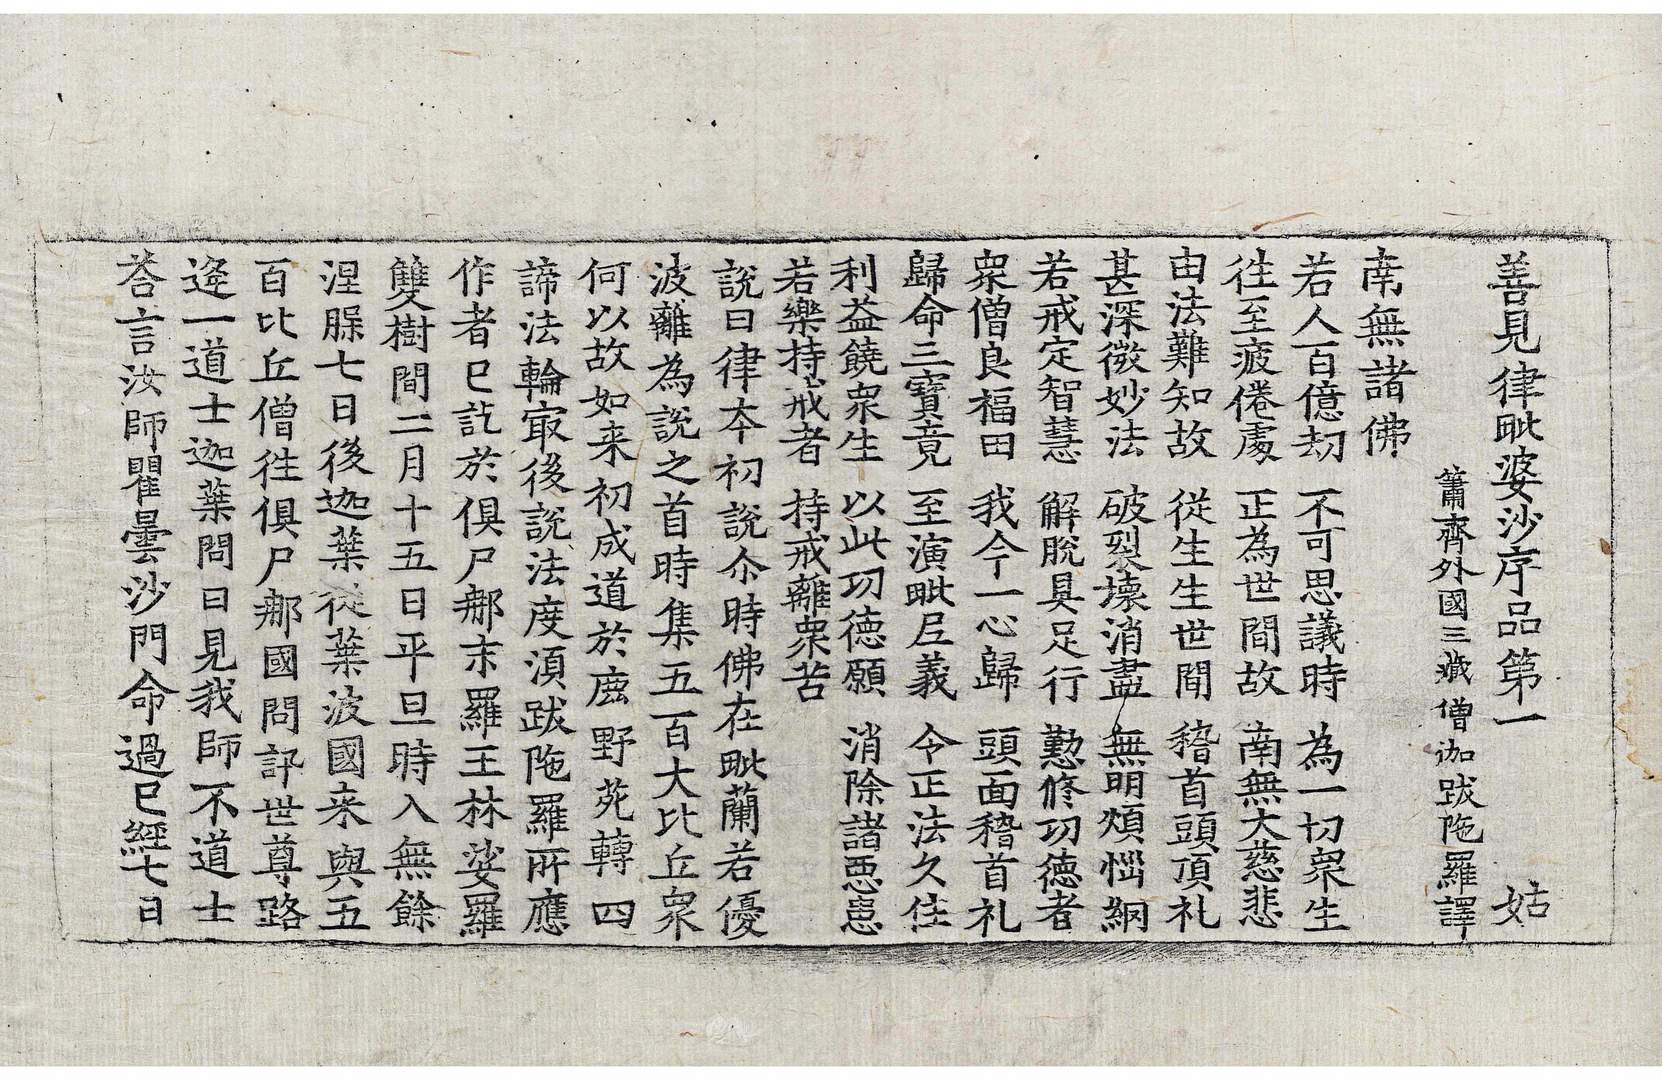 善見律毗婆沙序品第一 姑
簫齊外國三藏僧伽跋陁羅譯
南無諸佛
若人百億劫 不可思議時 為一切衆生
往至疲倦處 正為世間故 南無大慈悲
由法難知故 從生生世間 稽首頭頂礼
甚深微妙法 破裂壞消盡 無明煩惱網
若戒定智慧 解脫具足行 懃修功德者
衆僧良福田 我今一心歸 頭面稽首礼
歸命三寶竟 至演毗尼義 令正法久住
利益饒衆生 以此功德願 消除諸惡患
若樂持戒者 持戒離衆苦
說曰律本初說尒時佛在毗蘭若優
波離為說之首時集五百大比丘衆
何以故如来初成道於鹿野苑轉四
諦法輪冣後說法度湏跋陁羅所應
作者已訖於俱尸那末羅王林娑羅
雙樹間二月十五日平旦時入無餘
涅脲七日後迦葉從葉波國来與五
百比丘僧往俱尸那國問訊世尊路
逄一道士迦葉問曰見我師不道士
荅言汝師瞿曇沙門命過已經七日